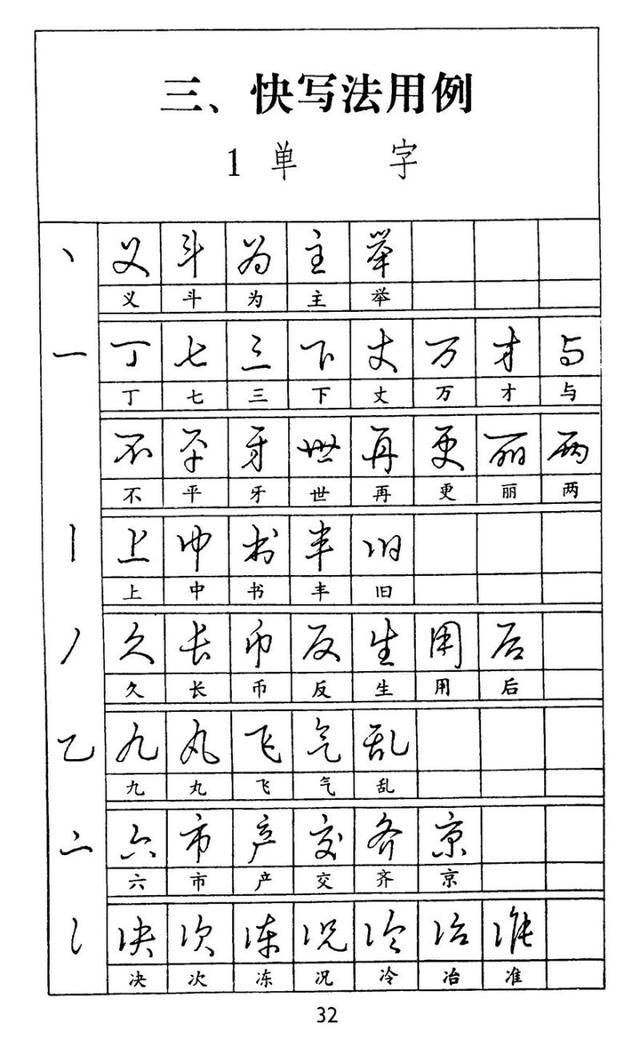 三、快写法用例
1 单 字
丶 义 斗 为 主 举
义 斗 为 主 举
一 丁 七 三 下 丈 万 才 与
丁 七 三 下 丈 万 才 与
不 平 牙 世 再 更 丽 两
不 平 牙 世 再 更 丽 两
丨 上 中 书 丰 旧
上 中 书 丰 旧
丿 久 长 币 反 生 用 后
久 长 币 反 生 用 后
乙 九 丸 飞 气 乱
九 丸 飞 气 乱
亠 六 市 产 交 齐 京
六 市 产 交 齐 京
冫 决 次 冻 况 冷 冶 准
决 次 冻 况 冷 冶 准
32